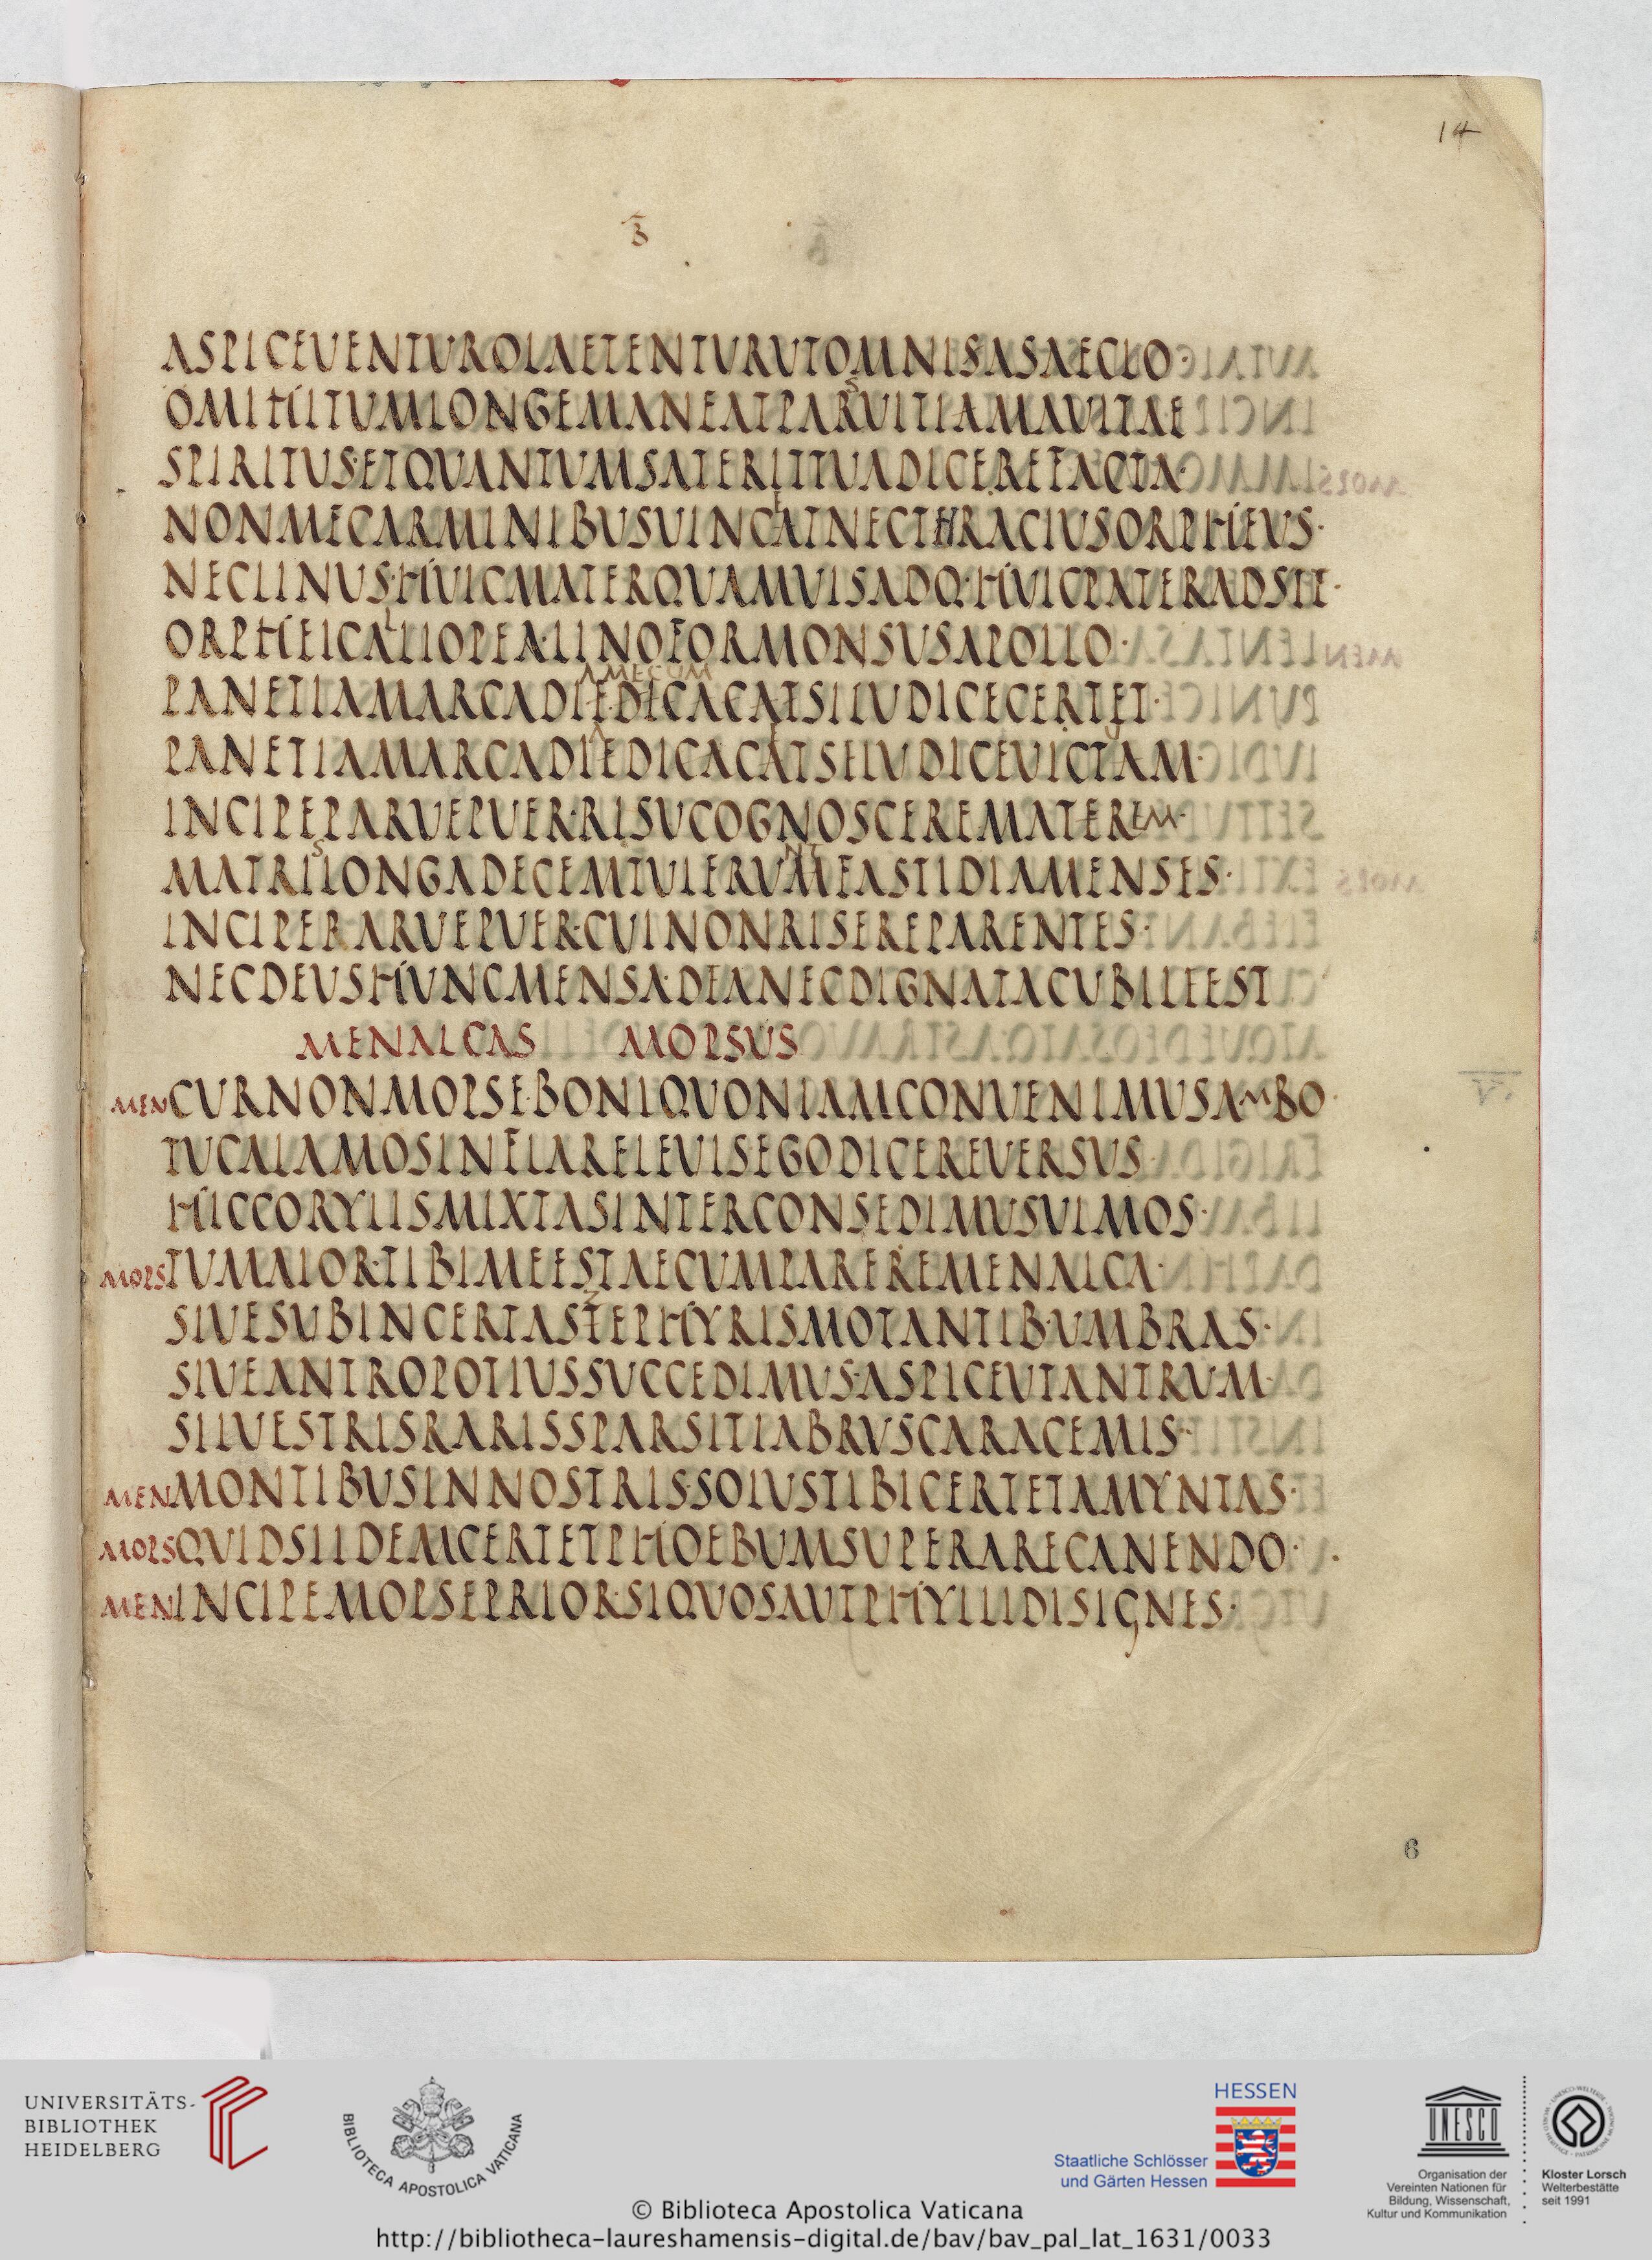 14
ASPICEVENTVROLAETENTVRVTOMNISASAECLO·
OMIHITVMLONGEMANEATPARVITIAMAVITAE
S
SPIRITVS·ETQVANTVMSATERITTVADICEREFACTA·
NONMECARMINIBVSVINCATNECTHRACIVSORPHEVS·
E
NECLINVS·HVICMATERQVAMVISADQ·HVICPATERADSIT·
ORPHEICALLIOPEA·LINOFORMONSVSAPOLLO·
L
AMECVM
PANETIAMARCADIEDICACATSIIVDICECERTET·
PANETIAMARCADIEDICACATSEIVDICEVICTAM·
INCIPEPARVEPVER·RISVCOGNOSCEREMATEREM·
S NT
MATRILONGADECEMTVLERVMFASTIDIAMENSES·
INCIPEPARVEPVER·CVINONRISEREPARENTES·
NECDEVSHVNCMENSA·DEANECDIGNATACVBILEEST
MENALCAS MOPSVS
MEN CVRNONMOPSE·BONIQVONIAMCONVENIMVSAMBO·
TVCALAMOSINFLARELEVISEGODICEREVERSVS
HICCORYLISMIXTASINTERCONSEDIMVSVLMOS·
MOPS TVMAIOR·TIBIMEESTAECVMPAREREMENALCA·
Z
SIVESVBINCERTASZEPHYRISMOTANTIB·VMBRAS·
SIVEANTROPOTIVSSVCCEDIMVS·ASPICEVTANTRVM·
SILVESTRISRARISSPARSITLABRVSCARACEMIS·
MEN MONTIBVSINNOSTRIS·SOLVSTIBICERTETAMYNTAS·
MOPS QVIDSIIDEMCERTETPHOEBVMSVPERARECANENDO·
MEN INCIPEMOPSEPRIOR·SIQVOSAVTPHYLLIDISIGNES·
6
UNIVERSITÄTS-
BIBLIOTHEK
HEIDELBERG
BIBLIOTECA APOSTOLICA VATICANA
HESSEN
Staatliche Schlösser
und Gärten Hessen
UNESCO
Organisation der
Vereinten Nationen für
Bildung, Wissenschaft,
Kultur und Kommunikation
Kloster Lorsch
Welterbestätte
seit 1991
© Biblioteca Apostolica Vaticana
http://bibliotheca-laureshamensis-digital.de/bav/bav_pal_lat_1631/0033